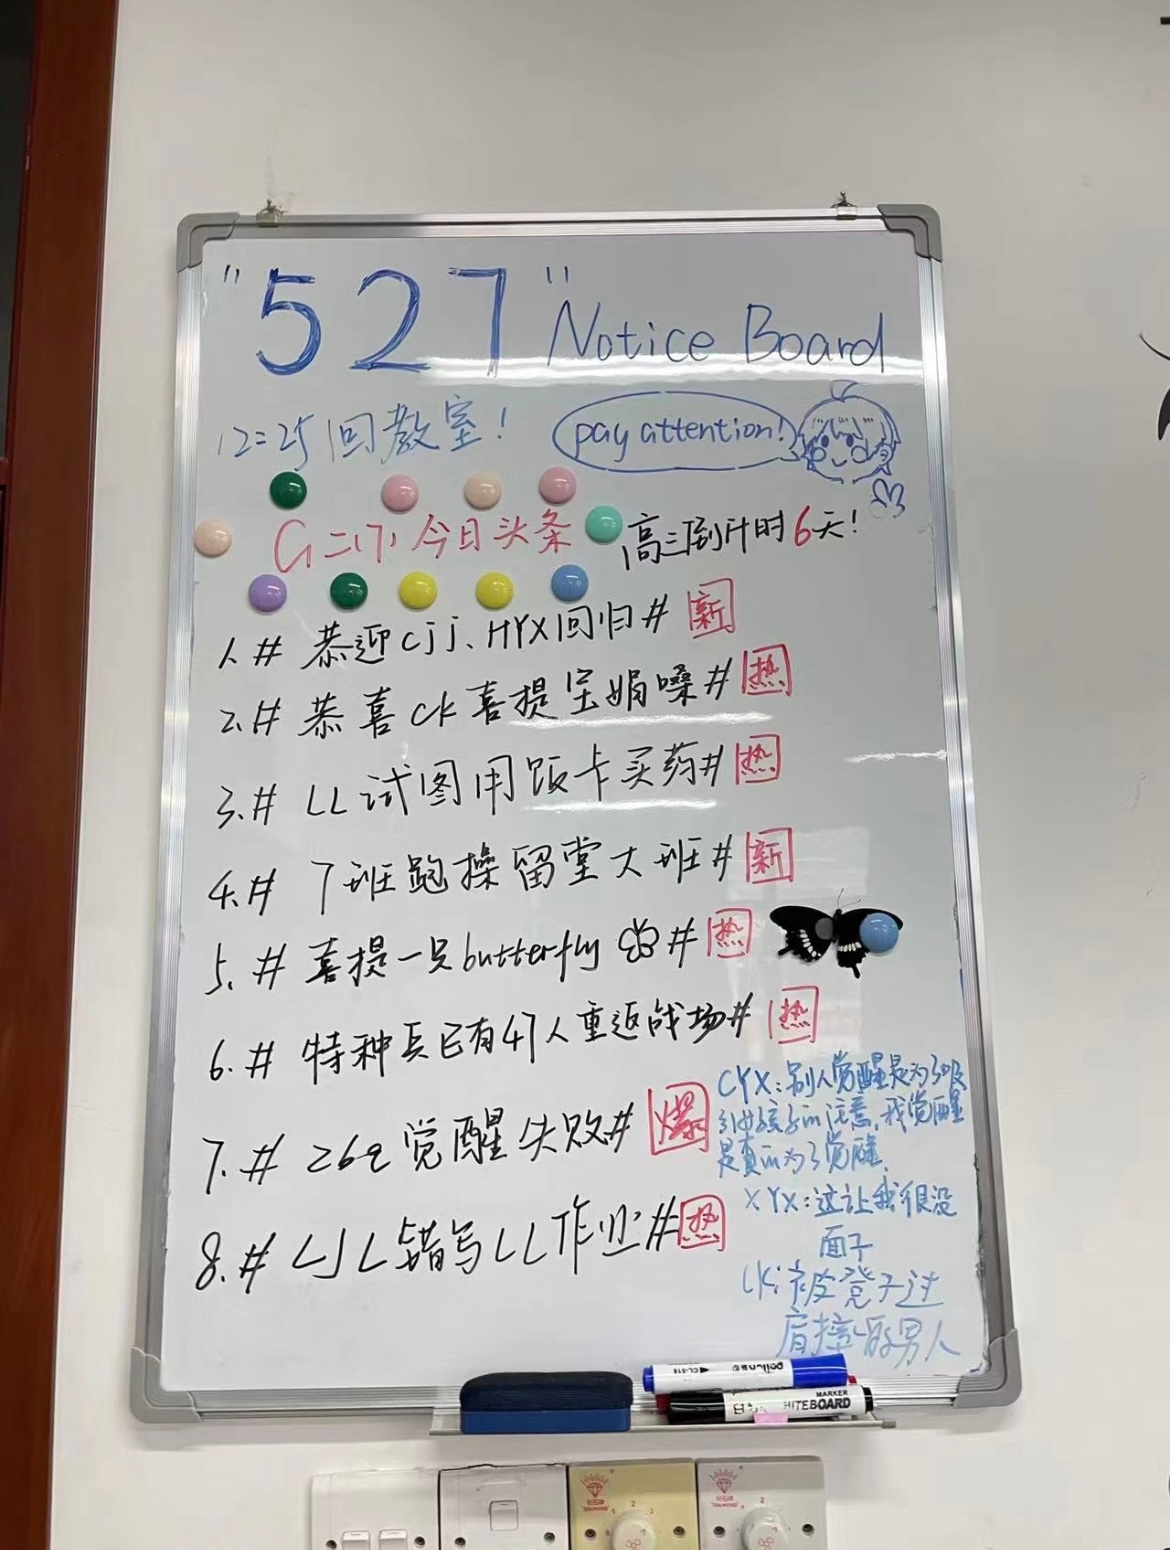 "527" Notice Board
12:25回教室!
pay attention!
G二(7)今日头条
高三倒计时6天!
1.# 恭迎cjj、HYX回归# 新
2.# 恭喜CK喜提宝娟嗓# 热
3.# LL试图用饭卡买药# 热
4.# 7班跑操留堂大班# 新
5.# 喜提一只butterfly # 热
6.# 特种兵已有47人重返战场# 热
7.# 26q觉醒失败# 爆
8.# LJL错写LL作业# 热
CYX:别人觉醒是为了吸
引女孩子的注意,我觉醒
是真的为了觉醒.
XYX:这让我很没
面子
CK:被凳子过
肩摔的男人
MARKER
WHITEBOARD